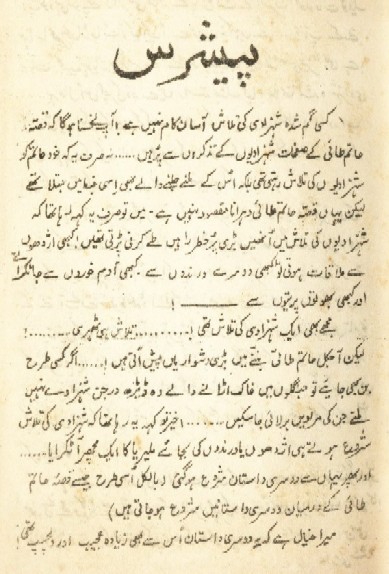 پیشرس
کسی گم شدہ شہزادی کی تلاش آسان کام نہیں ہے! آپ نے سنا ہوگا کہ قصّہ
حاتم طائی کے صفحات شہزادیوں کے تذکروں سے پُر ہیں ...... نہ صرف یہ کہ خود حاتم کو
شہزادیوں کی تلاش رہتی تھی بلکہ اُس کے ملنے جلنے والے بھی اسی خبط میں مبتلا تھے
لیکن یہاں قصّہ حاتم طائی دہرانا مقصود نہیں ہے۔ میں تو صرف یہ کہہ رہا تھا کہ
شہزادیوں کی تلاش میں اُنھیں بڑی پُرخطر راہیں طے کرنی پڑتی تھیں! کبھی اژدھوں
سے ملاقات ہوتی تو کبھی دوسرے درندوں سے۔ کبھی آدم خوروں سے جا ٹکرائے
اور کبھی بھوتوں پریتوں سے ـــــــــ!
مجھے بھی ایک شہزادی کی تلاش تھی! ......... تلاش ہی ٹھہری ..........!
لیکن آجکل حاتم طائی بننے میں بڑی دشواریاں پیش آتی ہیں! ...... اگر کسی طرح
بن بھی جایئے تو جنگلوں میں خاک اڑانے والے وہ ڈیڑھ درجن شہزادے نہیں
ملتے جن کی مرادیں برلائی جا سکیں ........ اخیر تو کہہ یہ رہا تھا کہ شہزادی کی تلاش
شروع ہوتے ہی اژدھوں یا درندوں کی بجائے ملیریا کا ایک مچھر آ ٹکرایا ......
اور پھر یہاں سے دوسری داستان شروع ہو گئی (بالکل اُسی طرح جیسے قصّہ حاتم
طائی کے درمیان دوسری داستانیں شروع ہو جاتی ہیں)
میرا خیال ہے کہ یہ دوسری داستان اُس سے بھی زیادہ عجیب اور دلچسپ تھی!